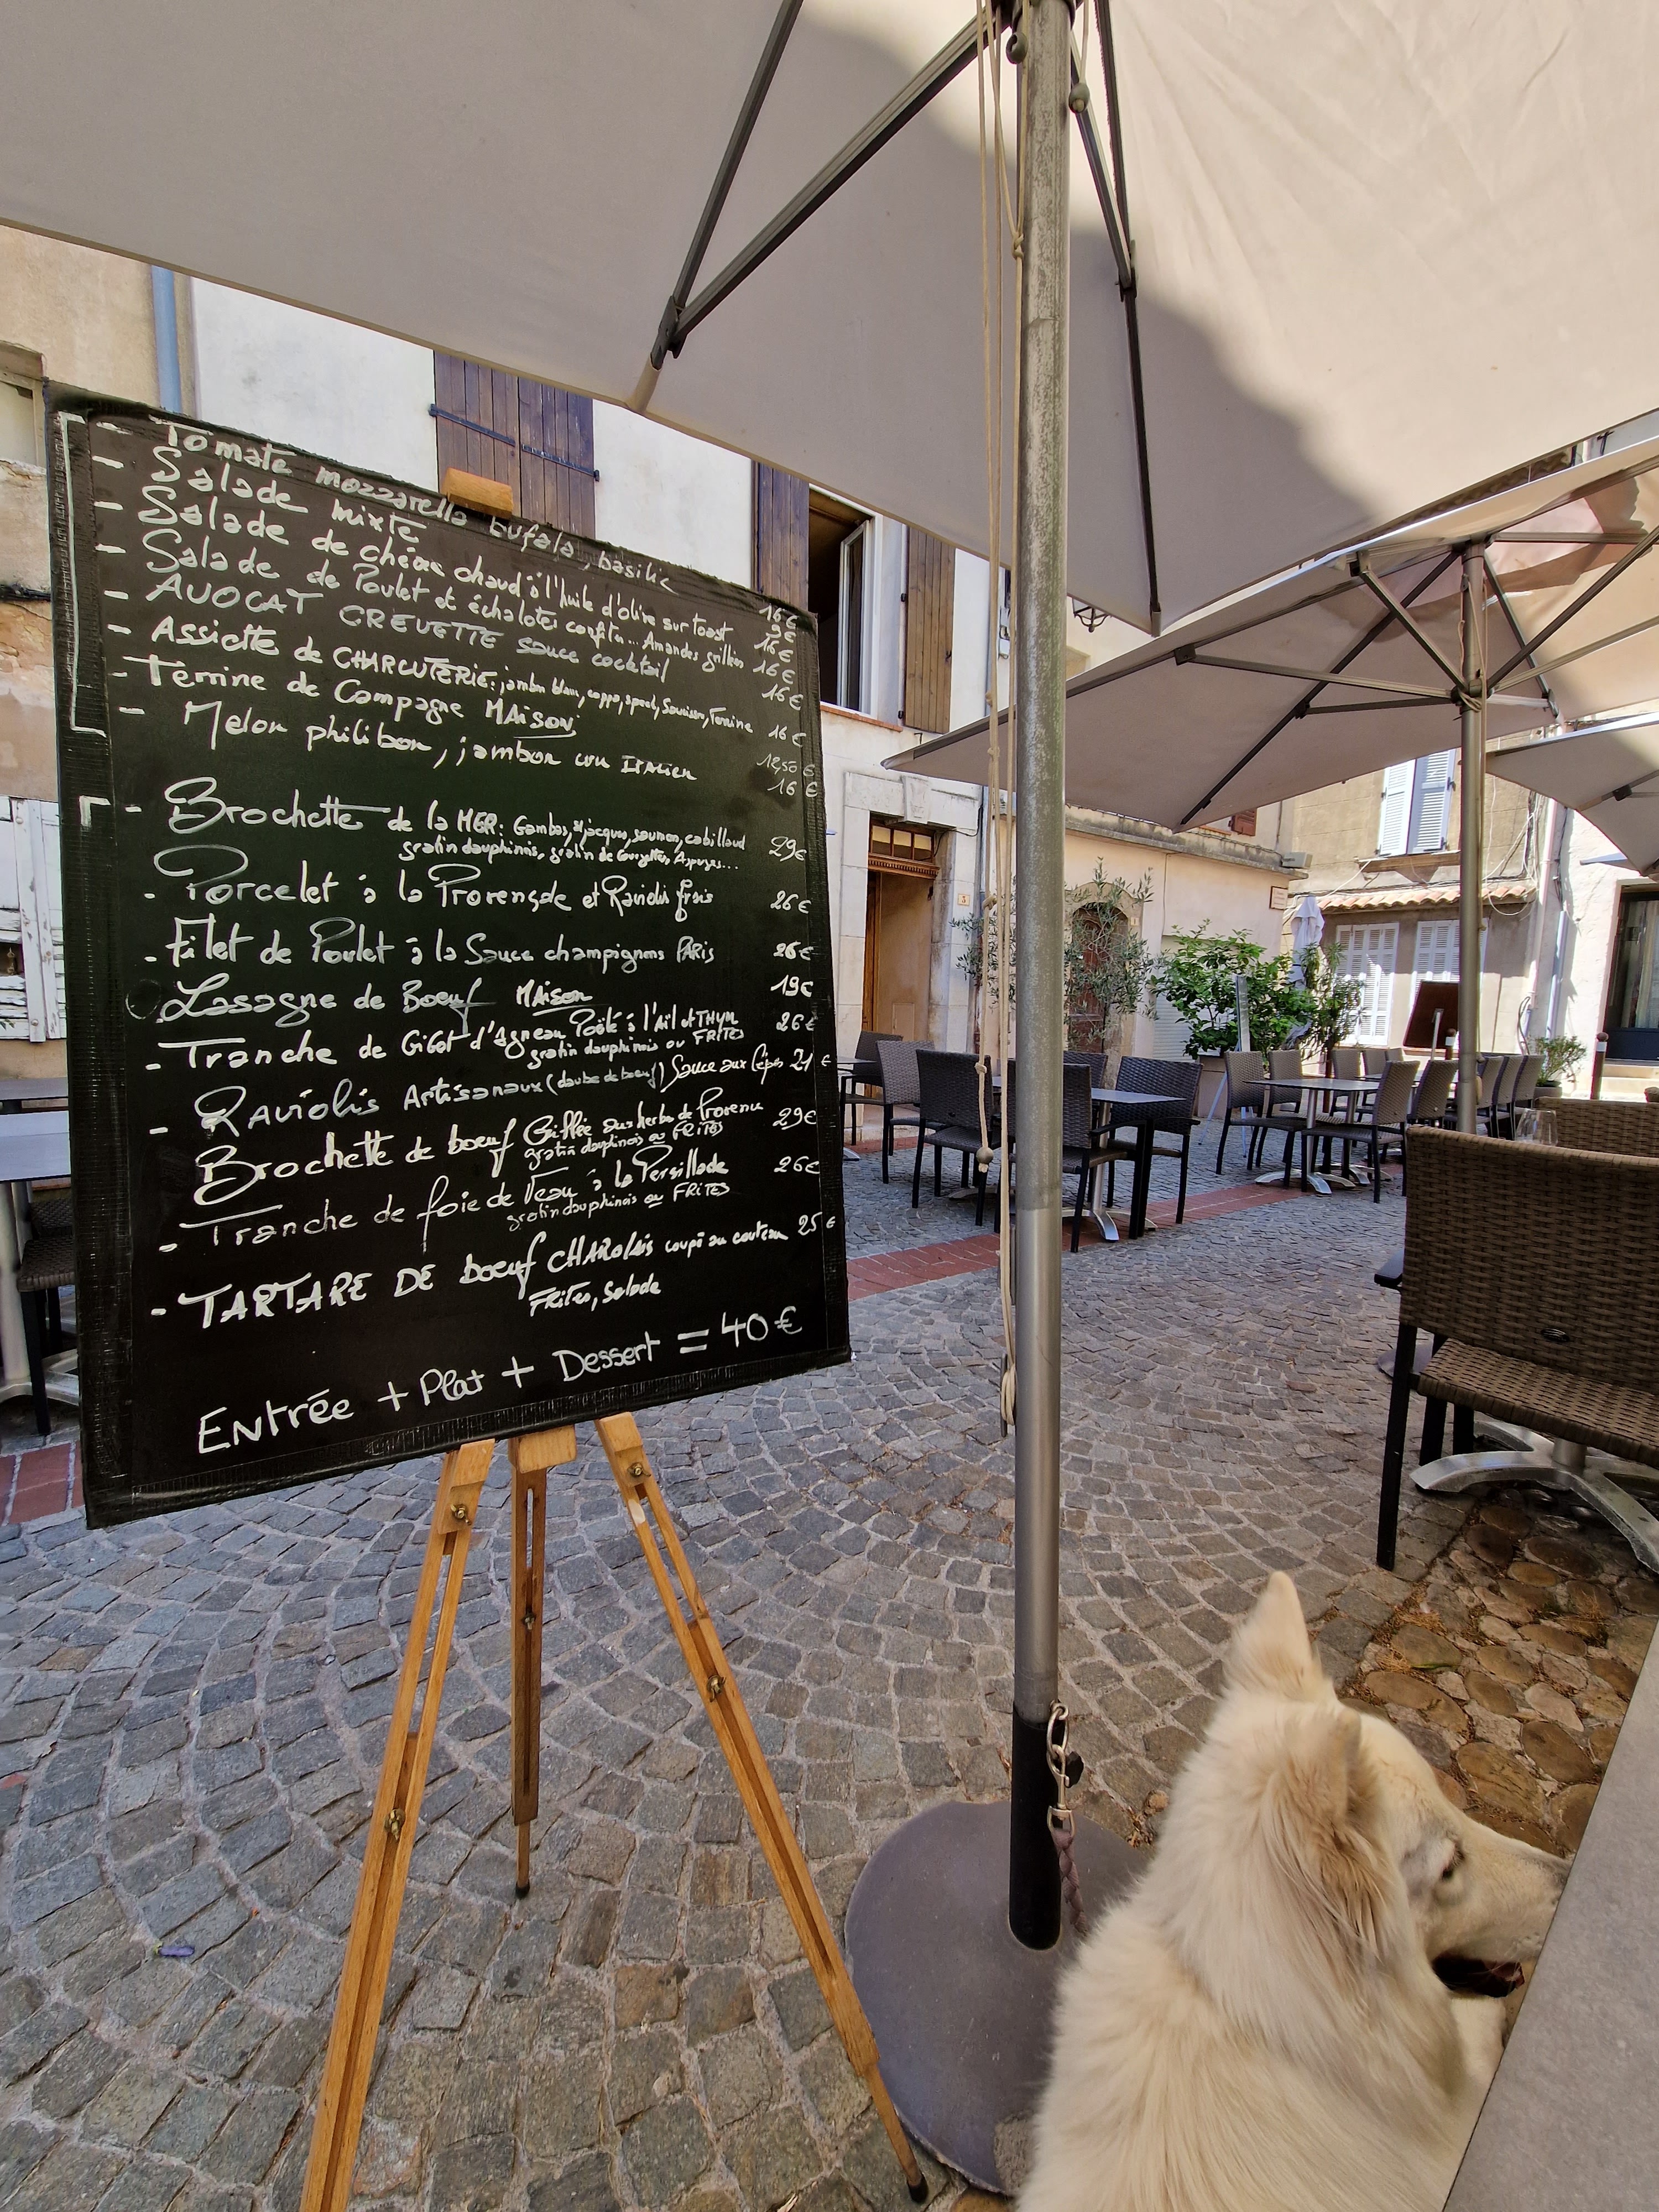 - Tomate mozzarella bufala, basilic 16€
- Salade mixte 9€
- Salade de chèvre chaud à l'huile d'olive sur toast 16€
- Salade de Poulet et échalotes confites... Amandes grillées 16€
- AVOCAT CREVETTE sauce cocktail 16€
- Assiette de CHARCUTERIE: jambon blanc, coppa, speck, Saucisson, Terrine 16€
- Terrine de Campagne MAISON 12,50€
- Melon philibon, jambon cru Italien 16€
- Brochette de la MER: Gambas, St jacques, saumon, cabillaud 29€
gratin dauphinois, gratin de Courgettes, Asperges...
- Porcelet à la Provençale et Raviolis frais 26€
- Filet de Poulet à la Sauce champignons PARIS 26€
Lasagne de Boeuf MAISON 19€
- Tranche de Gigot d'Agneau Poêlé à l'Ail et THYM 26€
gratin dauphinois ou FRITES
- Raviolis Artisanaux (daube de boeuf) Sauce aux Cèpes 21€
Brochette de boeuf Grillée aux herbes de Provence 29€
gratin dauphinois ou FRITES
- Tranche de foie de Veau à la Persillade 26€
gratin dauphinois ou FRITES
- TARTARE DE boeuf CHAROLAIS coupé au couteau 25€
Frites, Salade
Entrée + Plat + Dessert = 40€